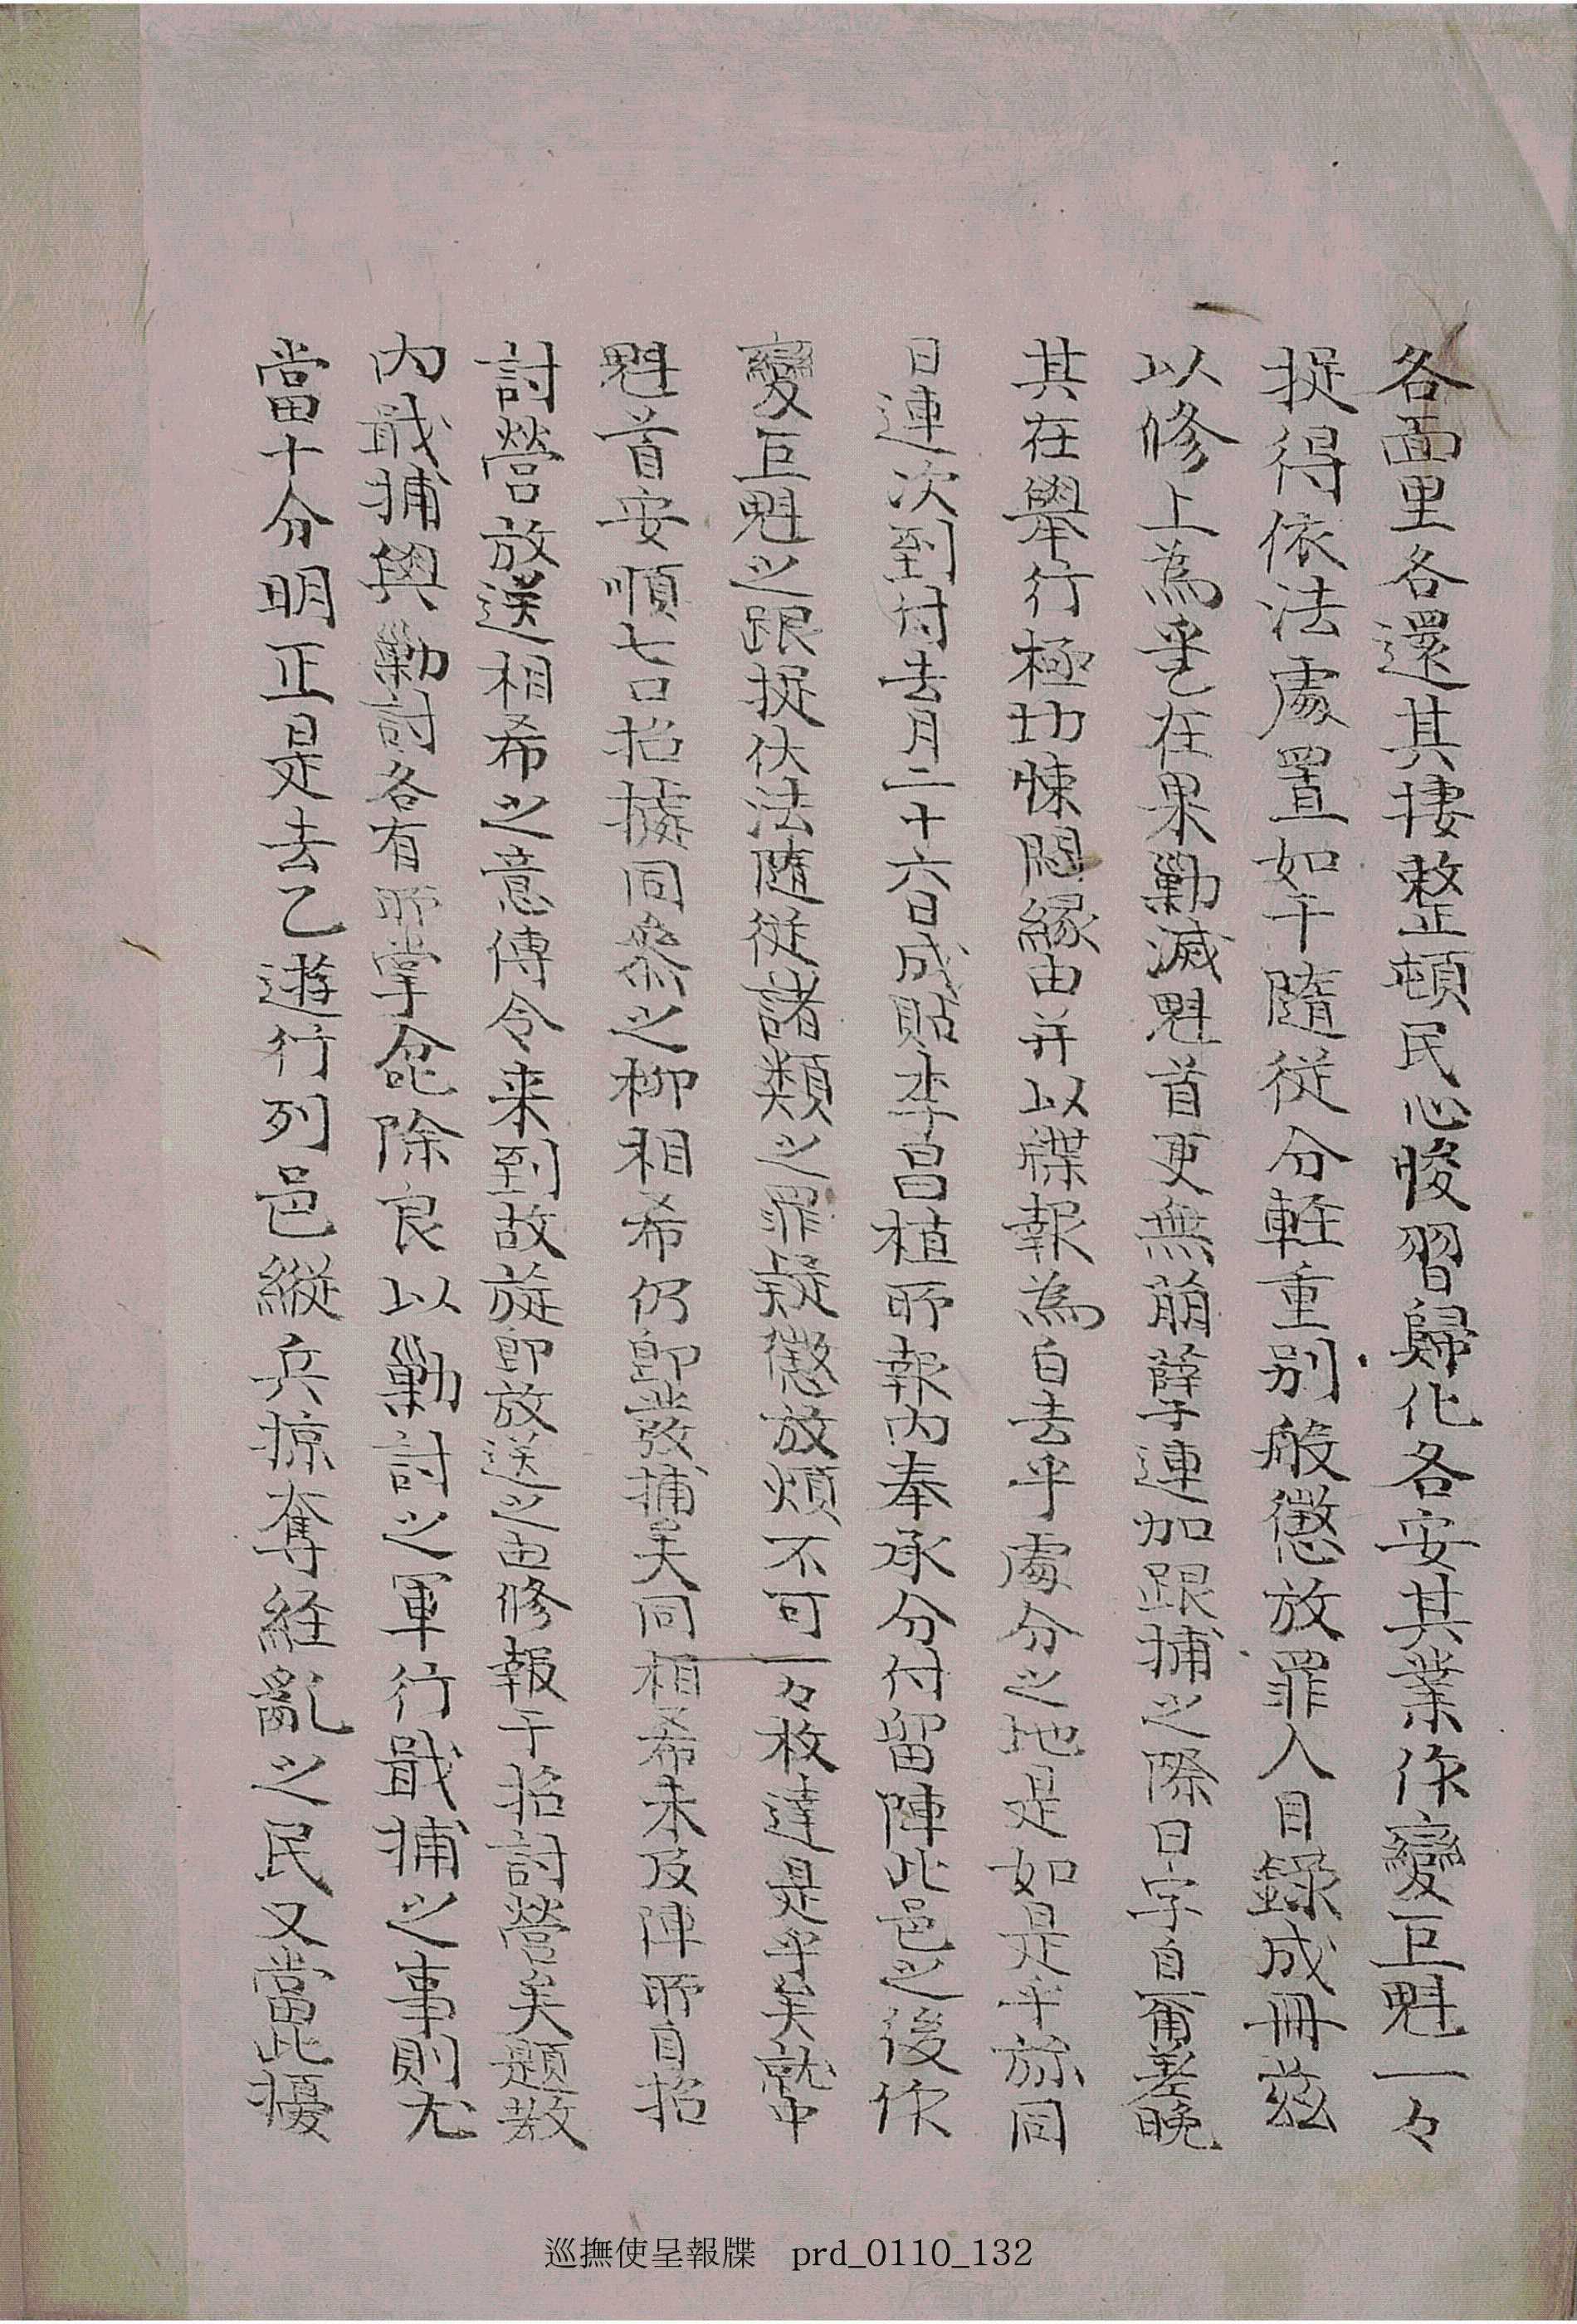 各面里各還其捿整頓民心悛習歸化各安其業作變巨魁一々
捉得依法處置如干隨從分輕重別般懲放罪人目錄成冊茲
以修上為乎乙在果勦滅魁首更無萠孽連加跟捕之際日字自爾差晚
其在擧行極切悚悶緣由幷以牒報為白去乎處分之地是如是乎旀同
日連次到付去月二十六日成貼李昌植所報內奉承分付留陣此邑之後作
變巨魁之跟捉伏法隨從諸類之罪疑懲放煩不可一々枚達是乎矣就中
魁首安順七口招據同叅之柳相希仍卽發捕矣同相希未及陣所自招
討營放送相希之意傳令来到故旋卽放送之由修報于招討營矣題敎
內戢捕與勦討各有所掌兺除良以勦討之軍行戢捕之事則尤
當十分明正是去乙遊行列邑縱兵掠奪經亂之民又當此擾
巡撫使呈報牒 prd_0110_132